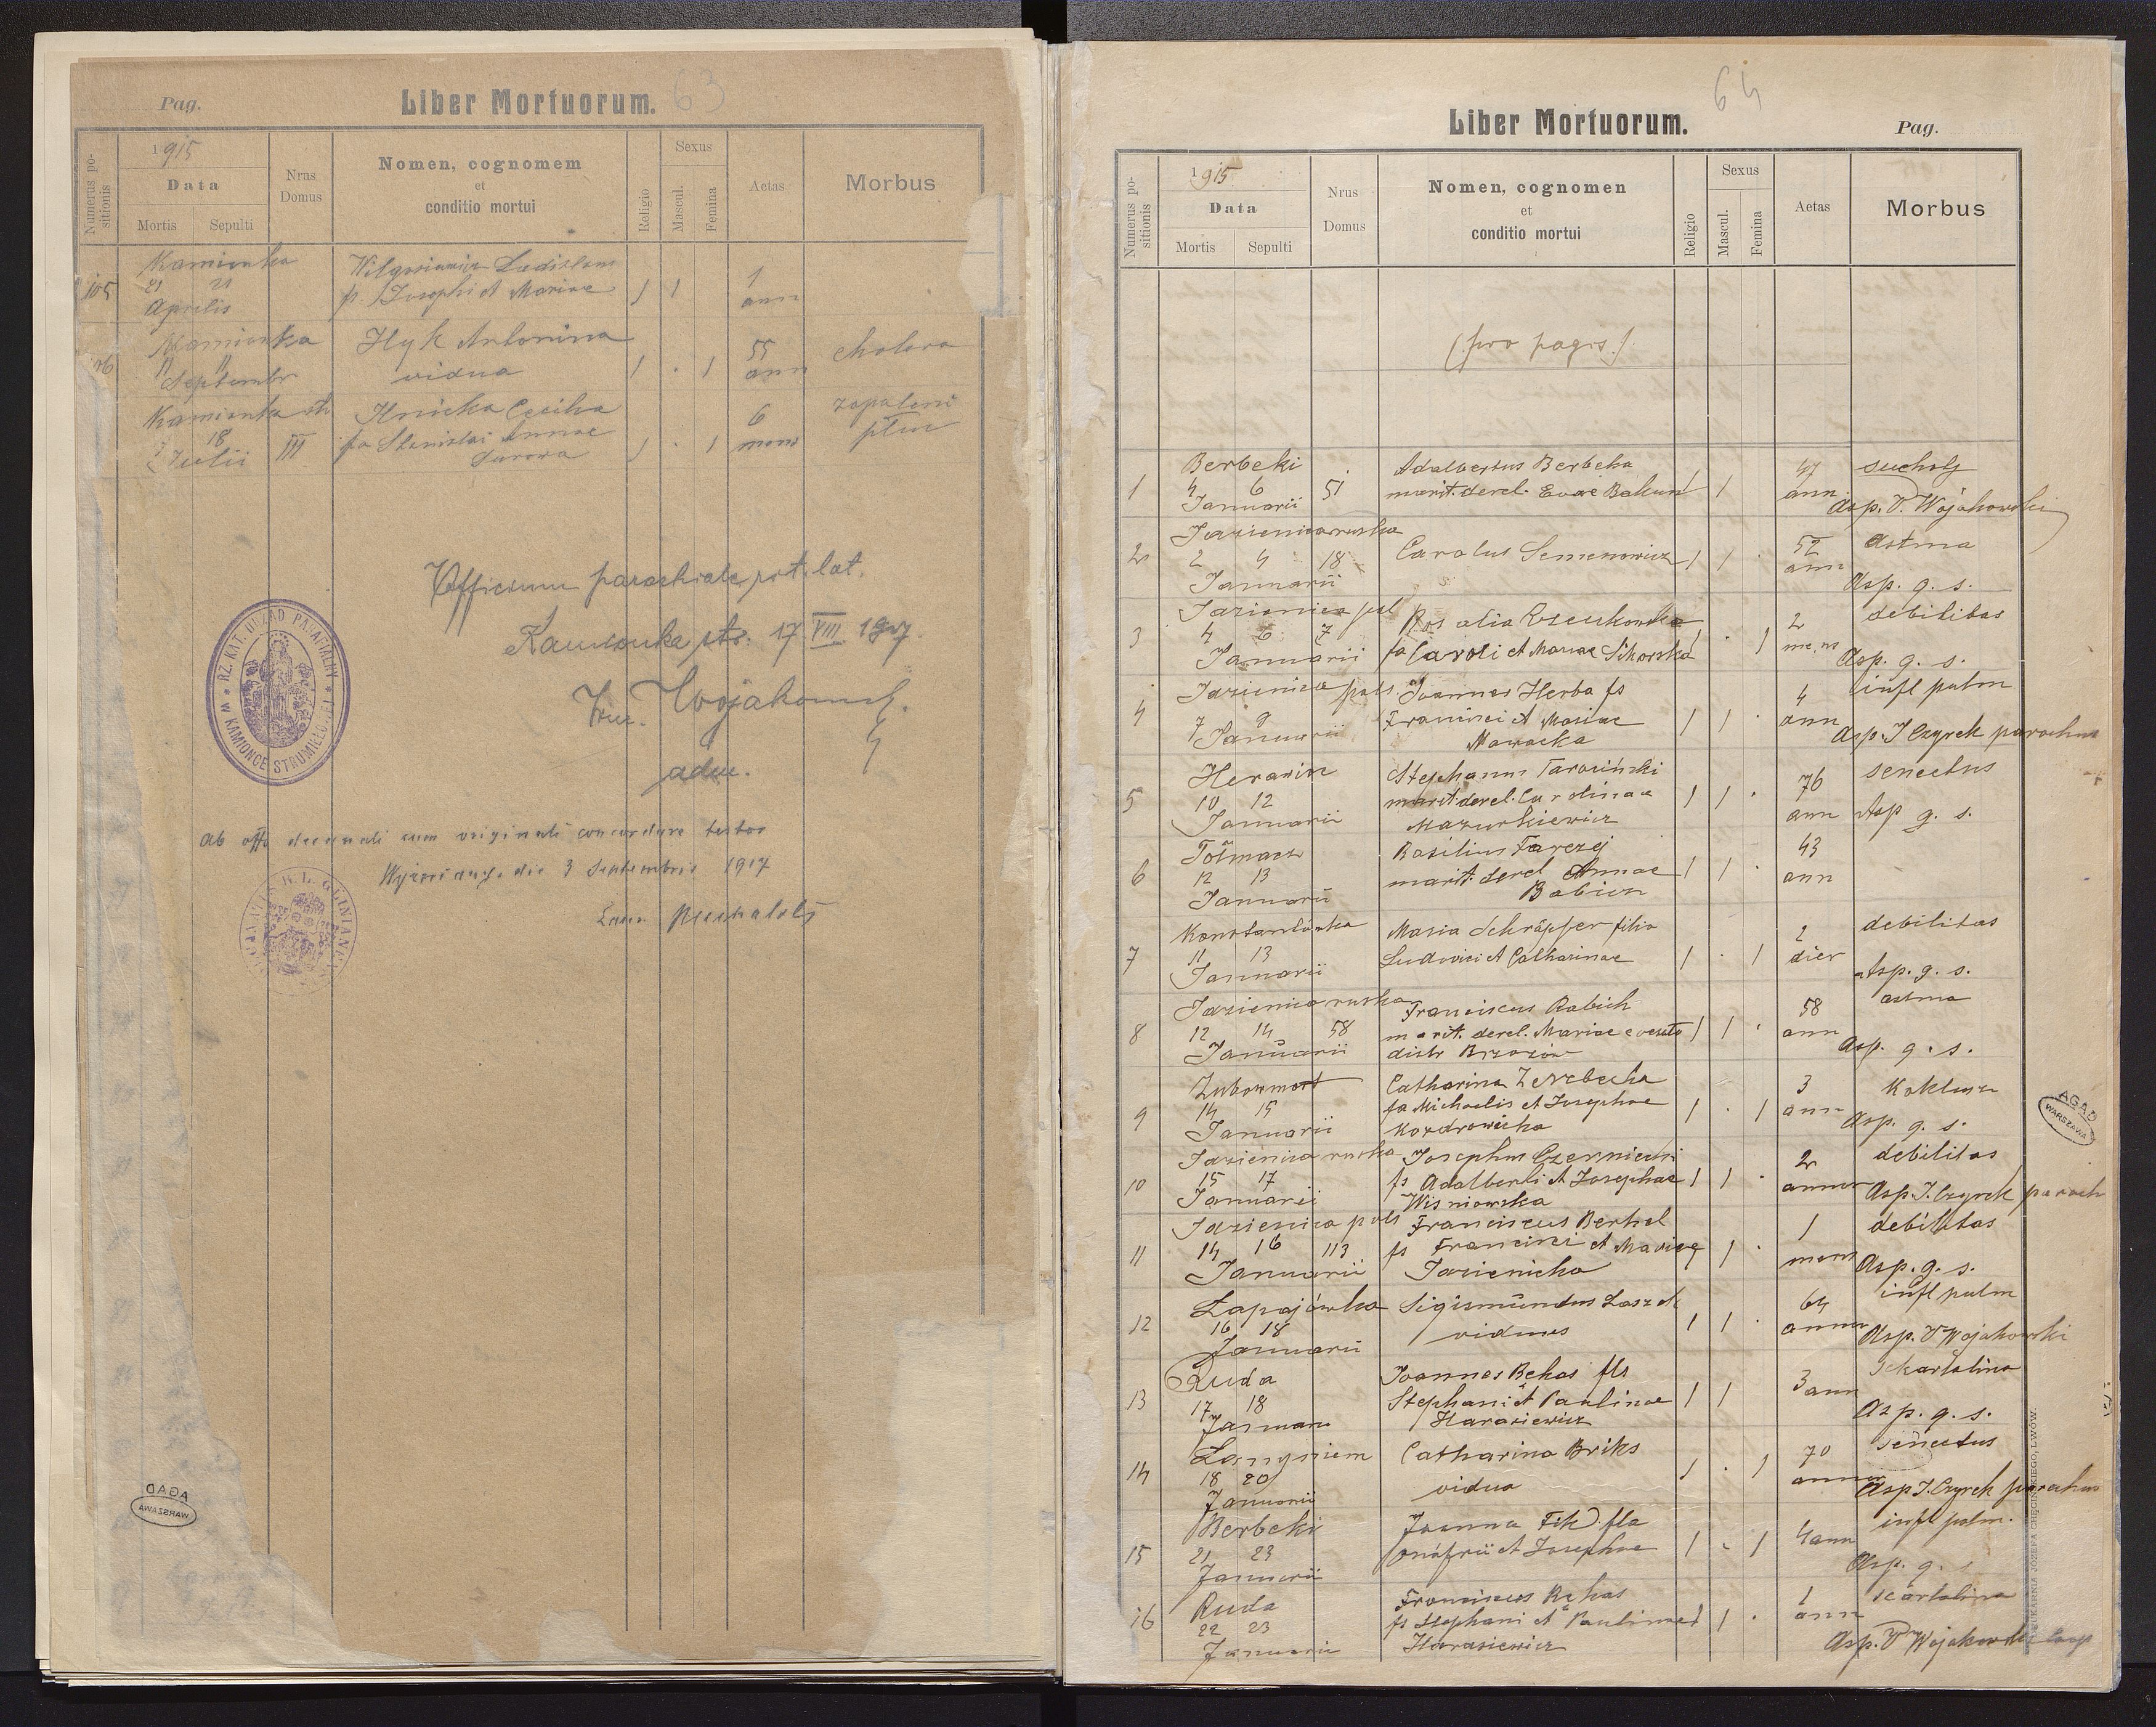 63
Pag. Liber Mortuorum.
Numerus positionis
1915
Data
Mortis Sepulti
Nrus Domus
Nomen, cognomem
et
conditio mortui
Religio
Sexus
Mascul. Femina
Aetas
Morbus
Kamionka
105 21 21
Aprilis
Ladislaus
fs. Josephi et Mariae 1 1 1 ann
Kamionka
11 11
Septembr
Hyk Antonina
vidua 1 . 1 55 ann cholera
Kamionka str
18
Julii III
Hnicka Cecilia
fa Stanislai Annae
Surowa 1 . 1 6 mens
zapaleni
płuc
Officium parochiale rit. lat.
Kamionka str. 17 VIII 1917.
Wojakowski
adm.
RZ. KAT. URZĄD PARAFIALNY W KAMIONCE STRUMIŁOWEJ
Ab offo decanali cum originali concordare testor
die 3 Septembris 1917
AGAD
WARSZAWA
64
Liber Mortuorum. Pag.
Numerus positionis
1915
Data
Mortis Sepulti
Nrus
Domus
Nomen, cognomen
et
conditio mortui
Religio
Sexus
Mascul. Femina
Aetas
Morbus
(pro pagis)
Berbeki
1 4 6 51
Januarii
Adalbertus Berbeka
marit. derel. Evae Bakun 1 47 ann
suchoty
Asp. V. Wojakowski
Jazienica ruska
2 2 4 18
Januarii
Carolus Semenowicz 1 1 . 52 ann
astma
Asp. g. s.
Jazienica pol
3 4 6 7
Januarii
Rosalia
fa Caroli et Mariae Sikorska . 1 2 mens
debilitas
Asp. g. s.
Jazienica pols
4 7 9
Januarii
Joannes Herba fs
Francisci et Mariae
Nawocka 1 1 . 4 ann
infl pulm
Asp. J Czyrek parochus
Herasin
5 10 12
Januarii
Stephanus Tarasiński
marit derel. Carolinae
Mazurkiewicz 1 1 . 76 ann
senectus
Asp g. s.
Tołmacz
6 12 13
Januarii
Basilius Farczej
marit. derel Annae
Babien 1 1 . 43 ann
Konstantówka
7 11 13
Januarii
Maria Schräpfer filia
Ludovici et Catharinae 1 . 1 2 dier
debilitas
Asp. g. s.
Jazienica ruska
8 12 14 58
Januarii
Franciscus Rabich
marit. derel. Mariae
distr Brzozów 1 1 . 58 ann
astma
Asp. g. s.
Zubowmost
9 14 15
Januarii
Catharina Zerebecka
fa Michaelis et Josephae
1 . 1 3 ann
Koklusz
Asp. g. s.
Jazienica ruska
10 15 17
Januarii
Josephus Czernicki
fs Adalberti et Josephae
Wisniowska 1 1 . 2 annor
debilitas
Asp. J. Czyrek paroch
Jazienica pols
11 14 16 113
Januarii
Franciscus Berhel
fs Francisci et Mariae
Jazienicka 1 . 1 mens
debilitas
Asp. g. s.
Łapajówka
12 16 18
Januarii
Sigismundus Laszek
viduus 1 1 . 64 annor
infl pulm
Asp. V Wojakowski
Ruda
13 17 18
Januarii
Joannes Behas fls
Stephani et Paulinae
Harasiewicz 1 1 3 ann
skarlatina
Asp. g. s.
Langniem
14 18 20
Januarii
Catharina Briks
vidua 1 . 1 70 annor
senectus
Asp J. Czyrek parochus
Berbeki
15 21 23
Januarii
Joanna Fik fla
Onufrii et Josephae 1 . 1 4 ann
infl pulm.
Asp. g. s
Ruda
16 22 23
Januarii
Franciscus Behas
fs Stephani et Paulinae
Harasiewicz 1 1 . 1 ann
scarlatina
Asp. V Wojakowski coop
AGAD
WARSZAWA
DRUKARNIA JÓZEFA CHĘCIŃSKIEGO, LWÓW.